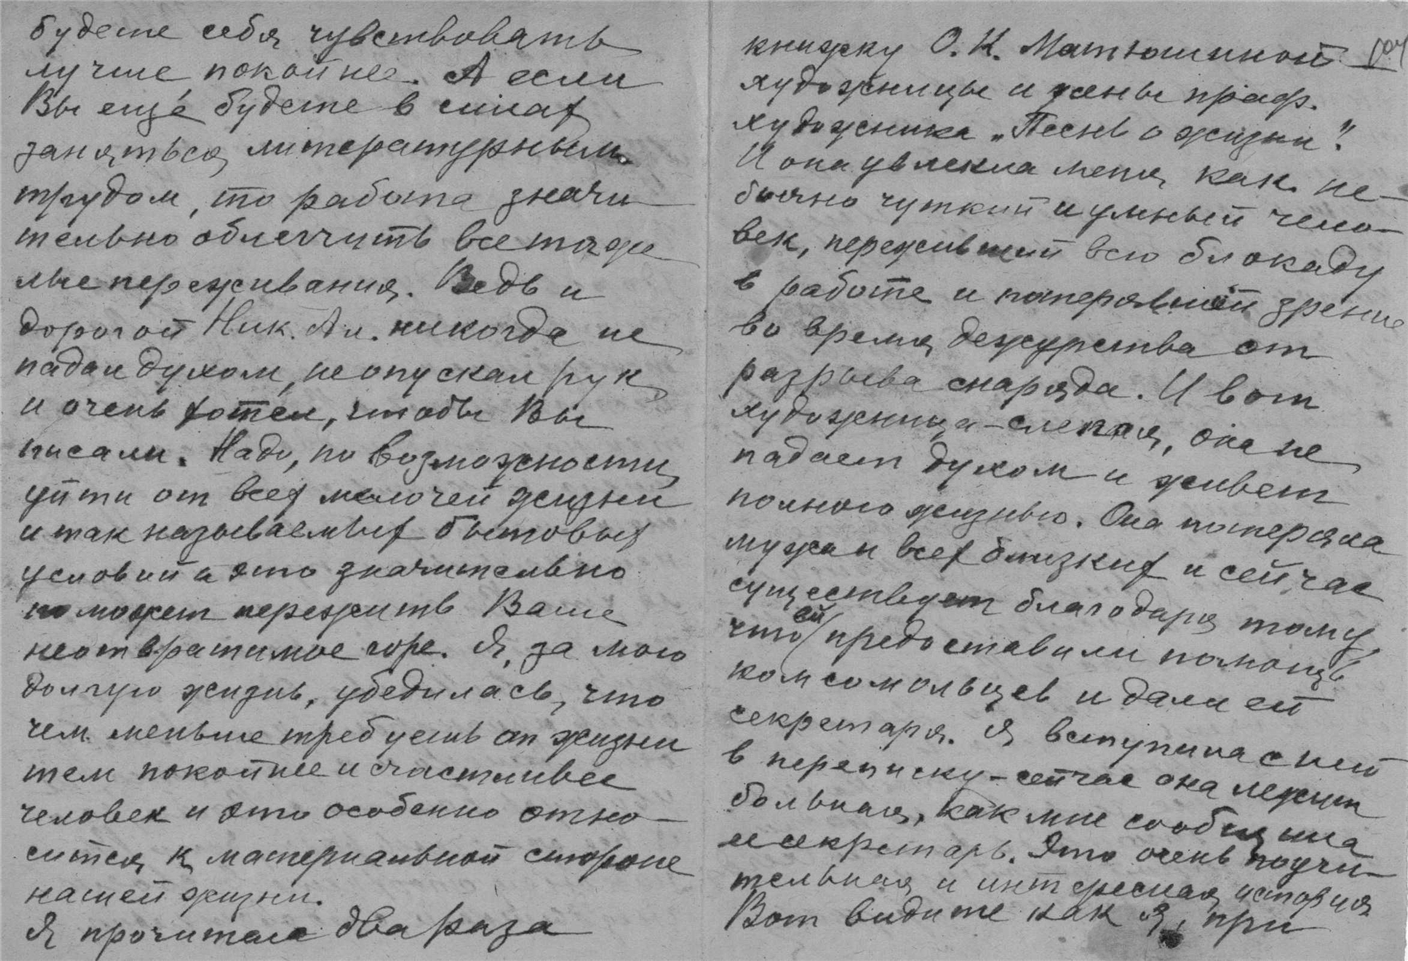 будете себя чувствовать
лучше покойнее. А если
Вы ещё будете в силах
заняться литературным
трудом, то работа значи
тельно облегчить все тяже
лые переживания. Ведь и
дорогой Ник. Ал. никогда не
падал духом, не опускал рук
и очень хотел, чтобы Вы
писали. Надо, по возможности,
уйти от всех мелочей жизни
и так называемых бытовых
условий и это значительно
поможет пережить Ваше
неотвратимое горе. Я, за мою
долгую жизнь, убедилась, что
чем меньше требуешь от жизни
тем покойнее и счастливее
человек и это особенно отно-
сится к материальной стороне
нашей жизни.
Я прочитала два раза
книжку О. К. Матюшиной
художницы и жены проф.
художника „Песнь о жизни".
И она увлекла меня, как не-
бычно чуткий и умный чело-
век, переживший всю блокаду
в работе и потерявший зрение
во время дежурства от
разрыва снаряда. И вот
художница-слепая, она не
падает духом и живет
полною жизнью. Она потеряла
мужа и всех близких и сейчас
существует благодаря тому,
что ей предоставили помощь
комсомольцев и дали ей
секретаря. Я вступила с ней
в переписку-сейчас она лежит
больная, как мне сообщила
ее секретарь. Это очень поучи-
тельная и интересная история
Вот видите как я, при